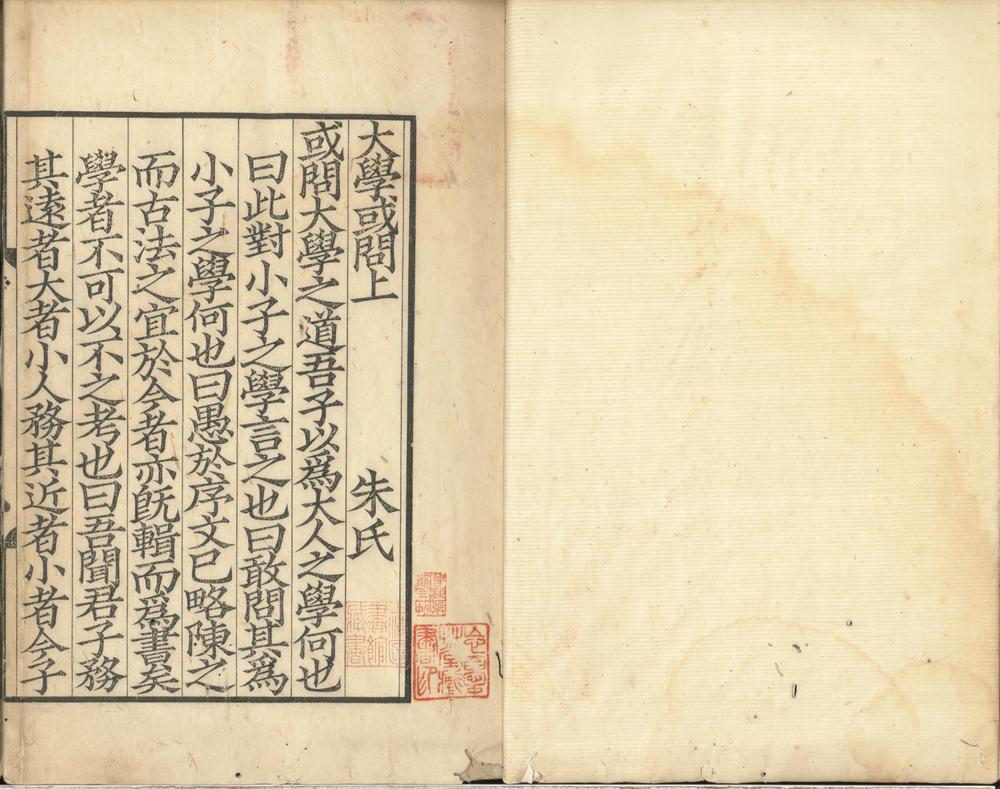 大學或問上 朱氏
或問大學之道吾子以為大人之學何也
曰此對小子之學言之也曰敢問其為
小子之學何也曰愚於序文已略陳之
而古法之宜於今者亦既輯而為書矣
學者不可以不之考也曰吾聞君子務
其遠者大者小人務其近者小者今子